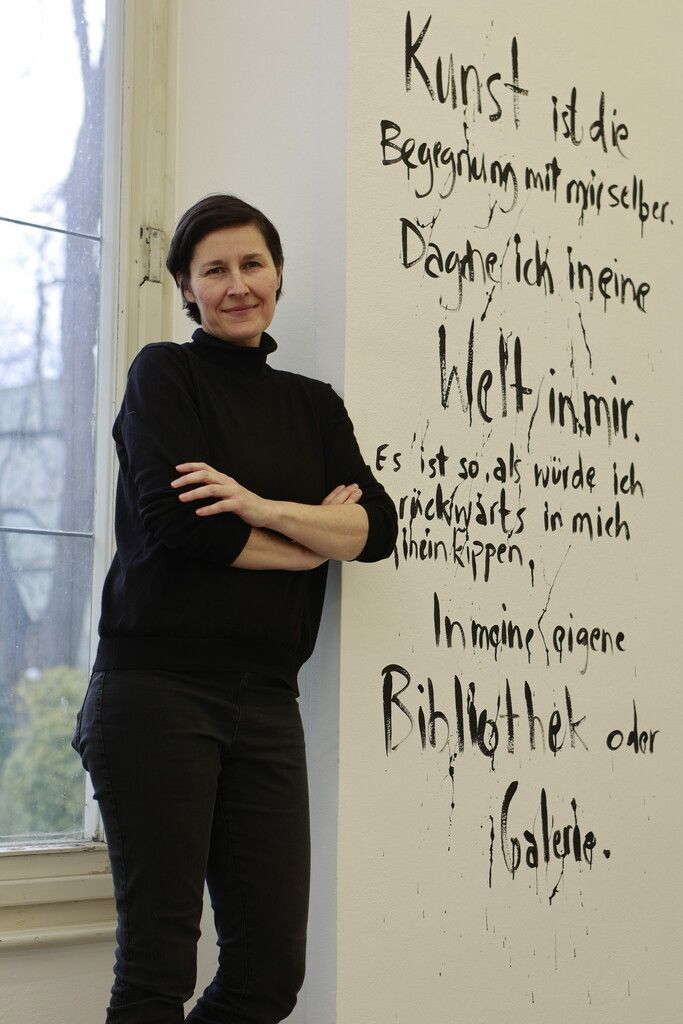 Kunst ist die
Begegnung mit mir selber.
Dagehe ich in eine
Welt in mir.
Es ist so, als würde ich
rückwärts in mich
hineinkippen,
In meine eigene
Bibliothek oder
Galerie.